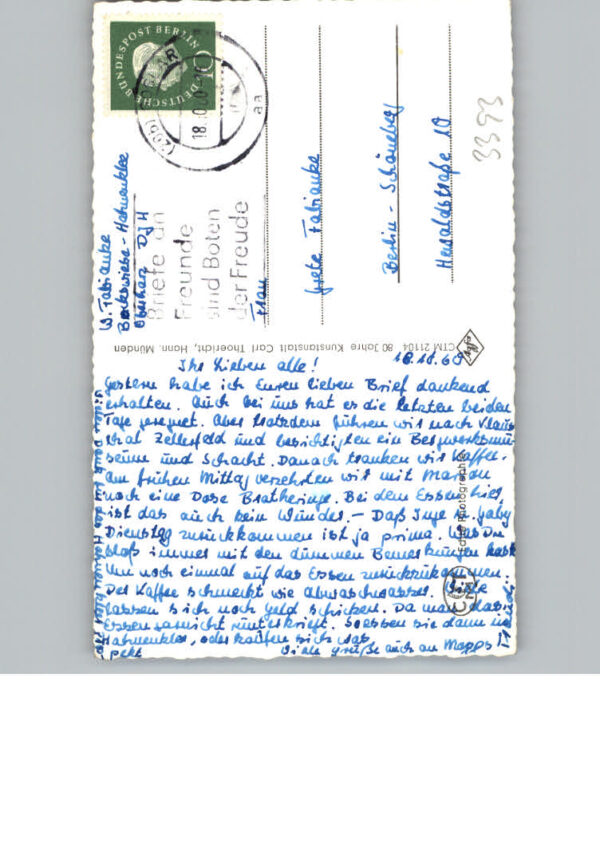 DEUTSCHE BUNDESPOST BERLIN
10
18.10.60-10
aa
Briefe an
Freunde
sind Boten
der Freude
W. Fabianke
Bockswiese-Hahnenklee
Oberharz DJH
Frau
Grete Fabianke
Berlin-Schöneberg
Hewaldstraße 10
3393
CTM 21104 80 Jahre Kunstanstalt Carl Thoericht, Hann. Münden
Echte Photographie
CTM
18.10.60
Ihr Lieben alle!
Gestern habe ich Euren lieben Brief dankend
erhalten. Auch bei uns hat es die letzten beiden
Tage geregnet. Aber trotzdem fuhren wir nach Klaus
thal Zellerfeld und besichtigten ein Bergwerksmu-
seum und Schacht. Danach tranken wir Kaffee.
Am frühen Mittag verzehrten wir mit Marion
noch eine Dose Bratheringe. Bei dem Essen hier
ist das auch kein Wunder. - Daß Inge u. Gaby
Dienstag zurückkommen ist ja prima. Was Du
bloß immer mit den dummen Bemerkungen hast
Um noch einmal auf das Essen zurückzukommen.
Der Kaffee schmeckt wie Abwaschwasser.
lassen sich noch Geld schicken. Da man das
Essen garnicht runterkriegt. So essen sie dann in
Hahnenklee, oder kaufen sich was.
Viele Grüße auch an Mapps
Vielen Dank für das